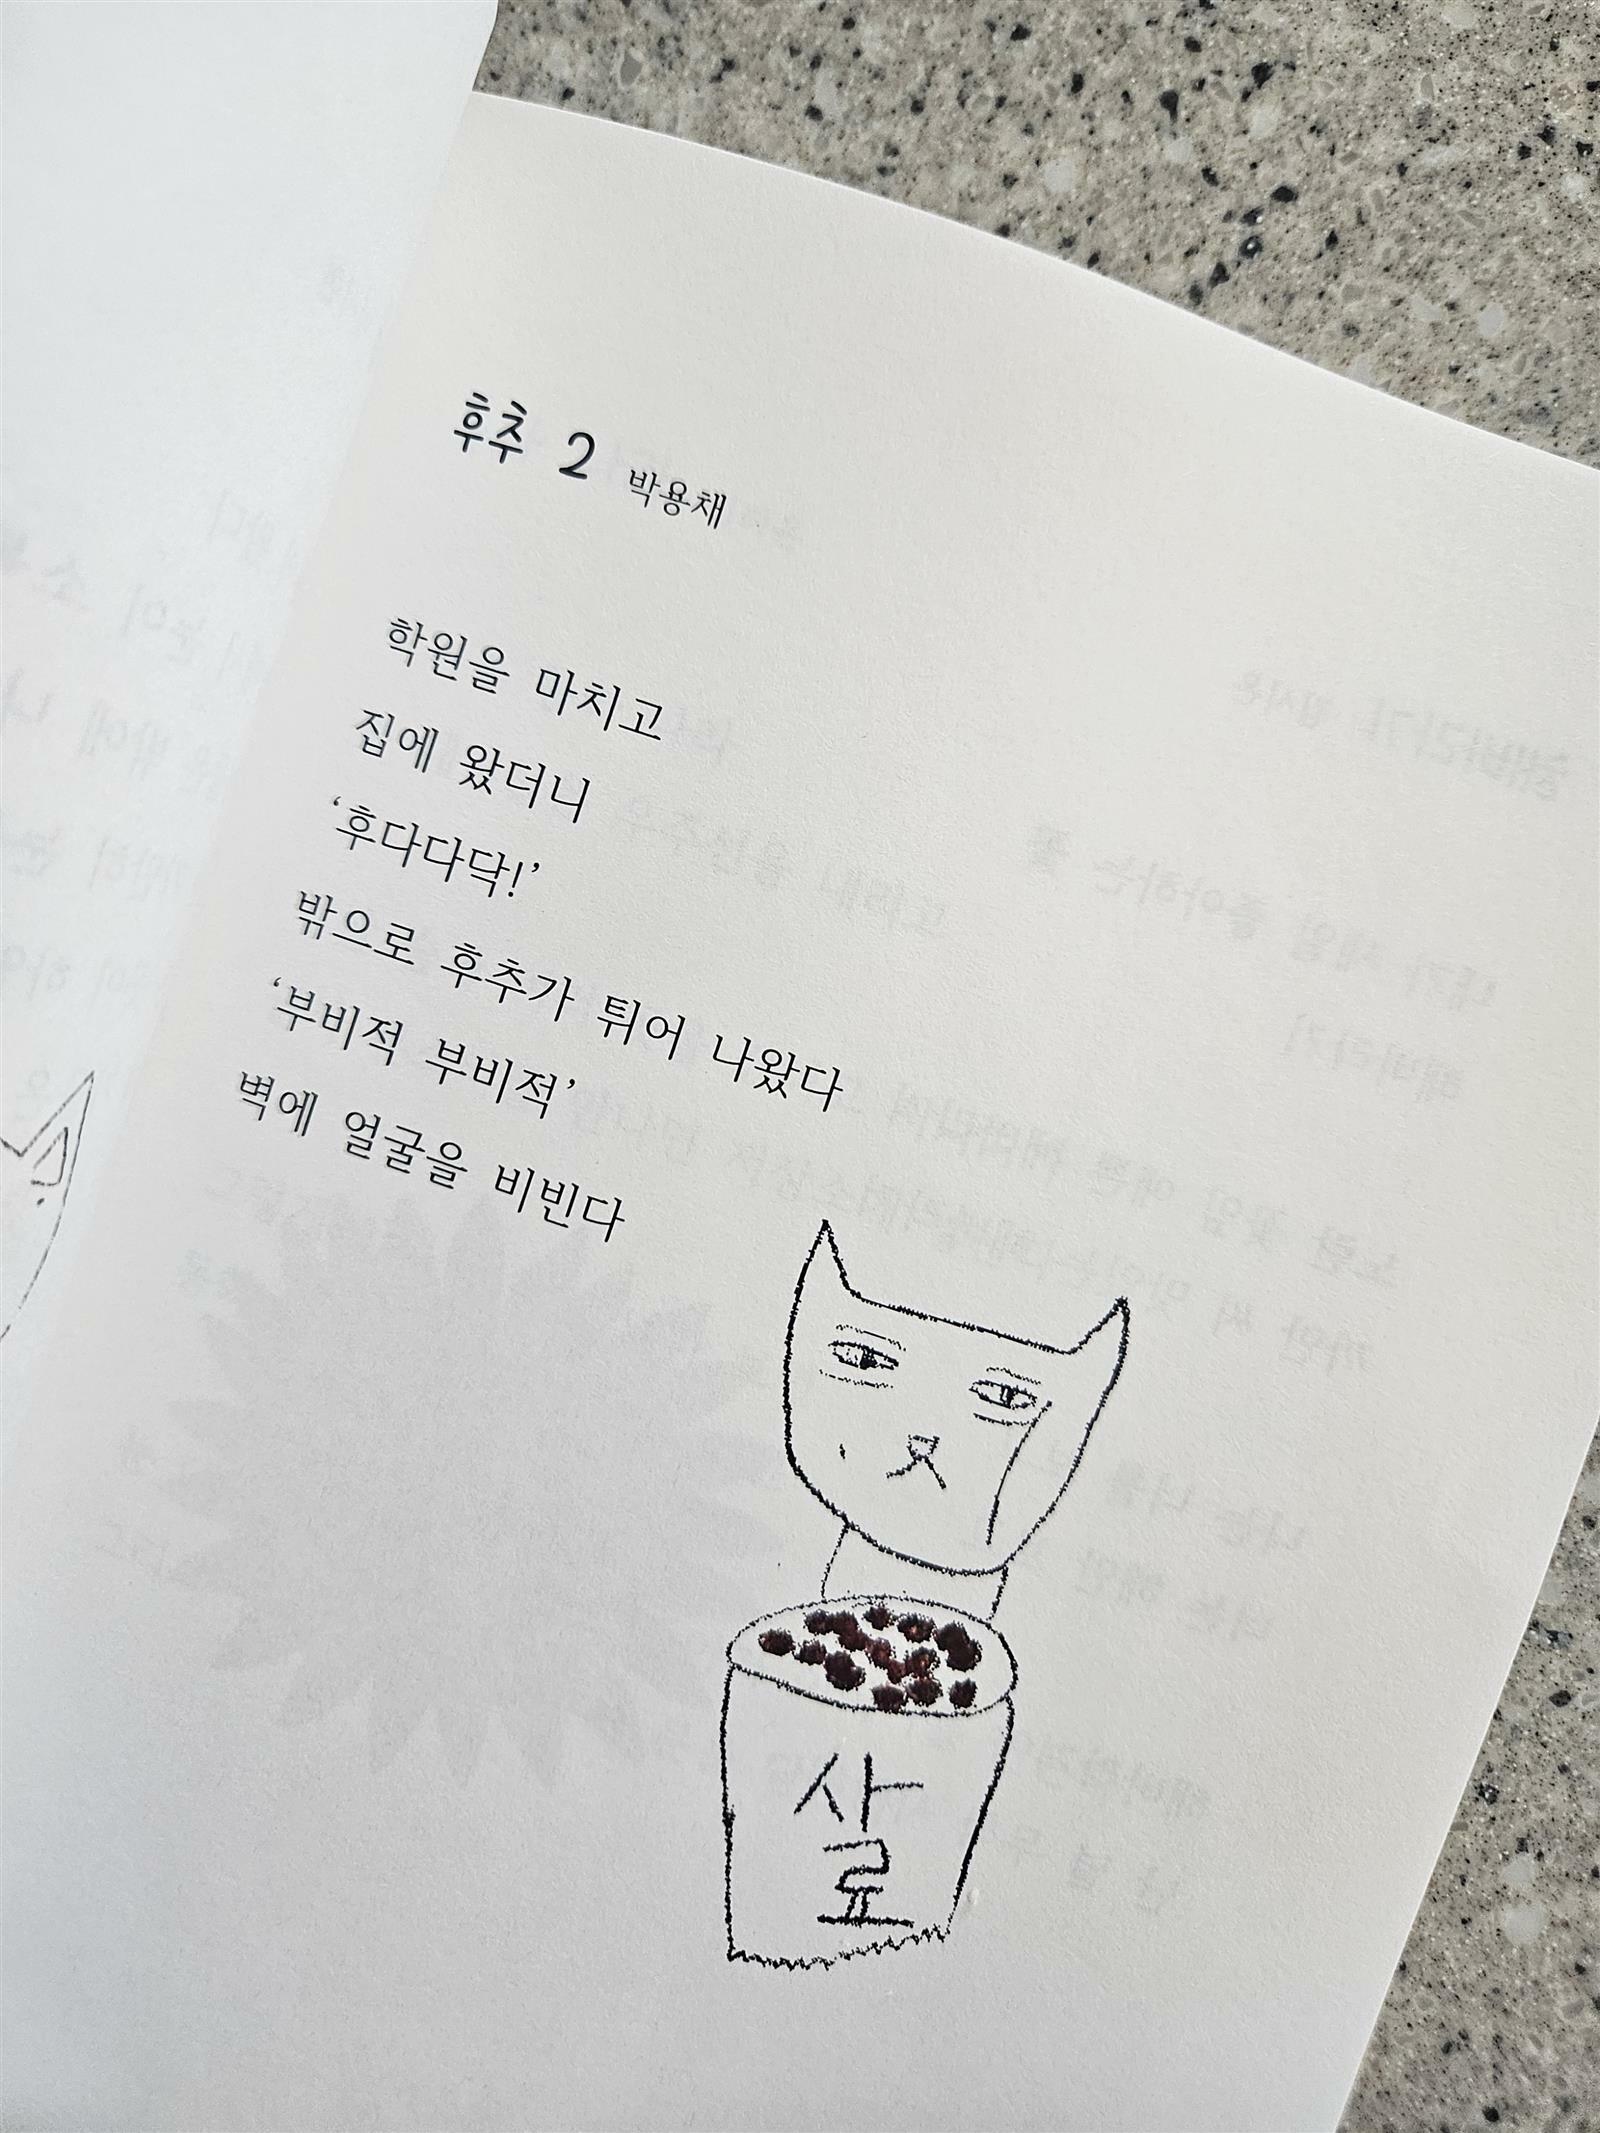 후추 2 박용채
학원을 마치고
집에 왔더니
‘후다다닥!’
밖으로 후추가 튀어 나왔다
‘부비적 부비적’
벽에 얼굴을 비빈다
사
료